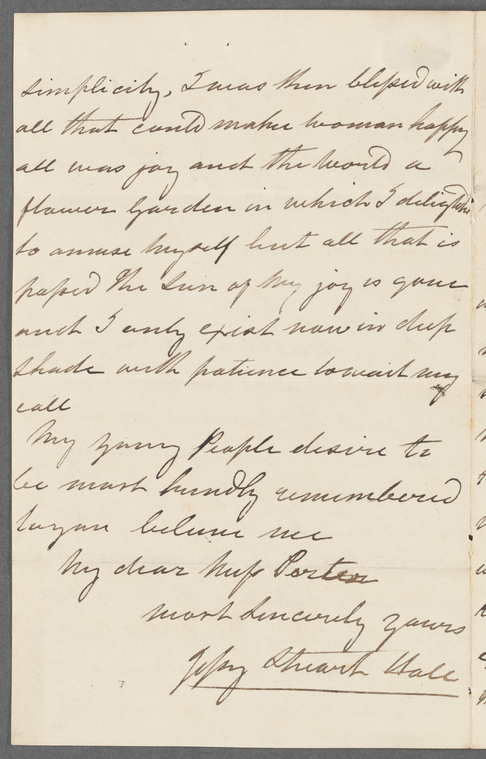 simplicity, I was then blessed with
all that could make woman happy
all was joy and the World a
flower Garden in which I delighted
to amuse myself but all that is
passed the Sun of my joy is gone
and I only exist now in deep
shade with patience to wait my
call
My young People desire to
be most kindly remembered
to you believe me
My dear Miss Porter
most Sincerely yours
Jessy Stuart Hall